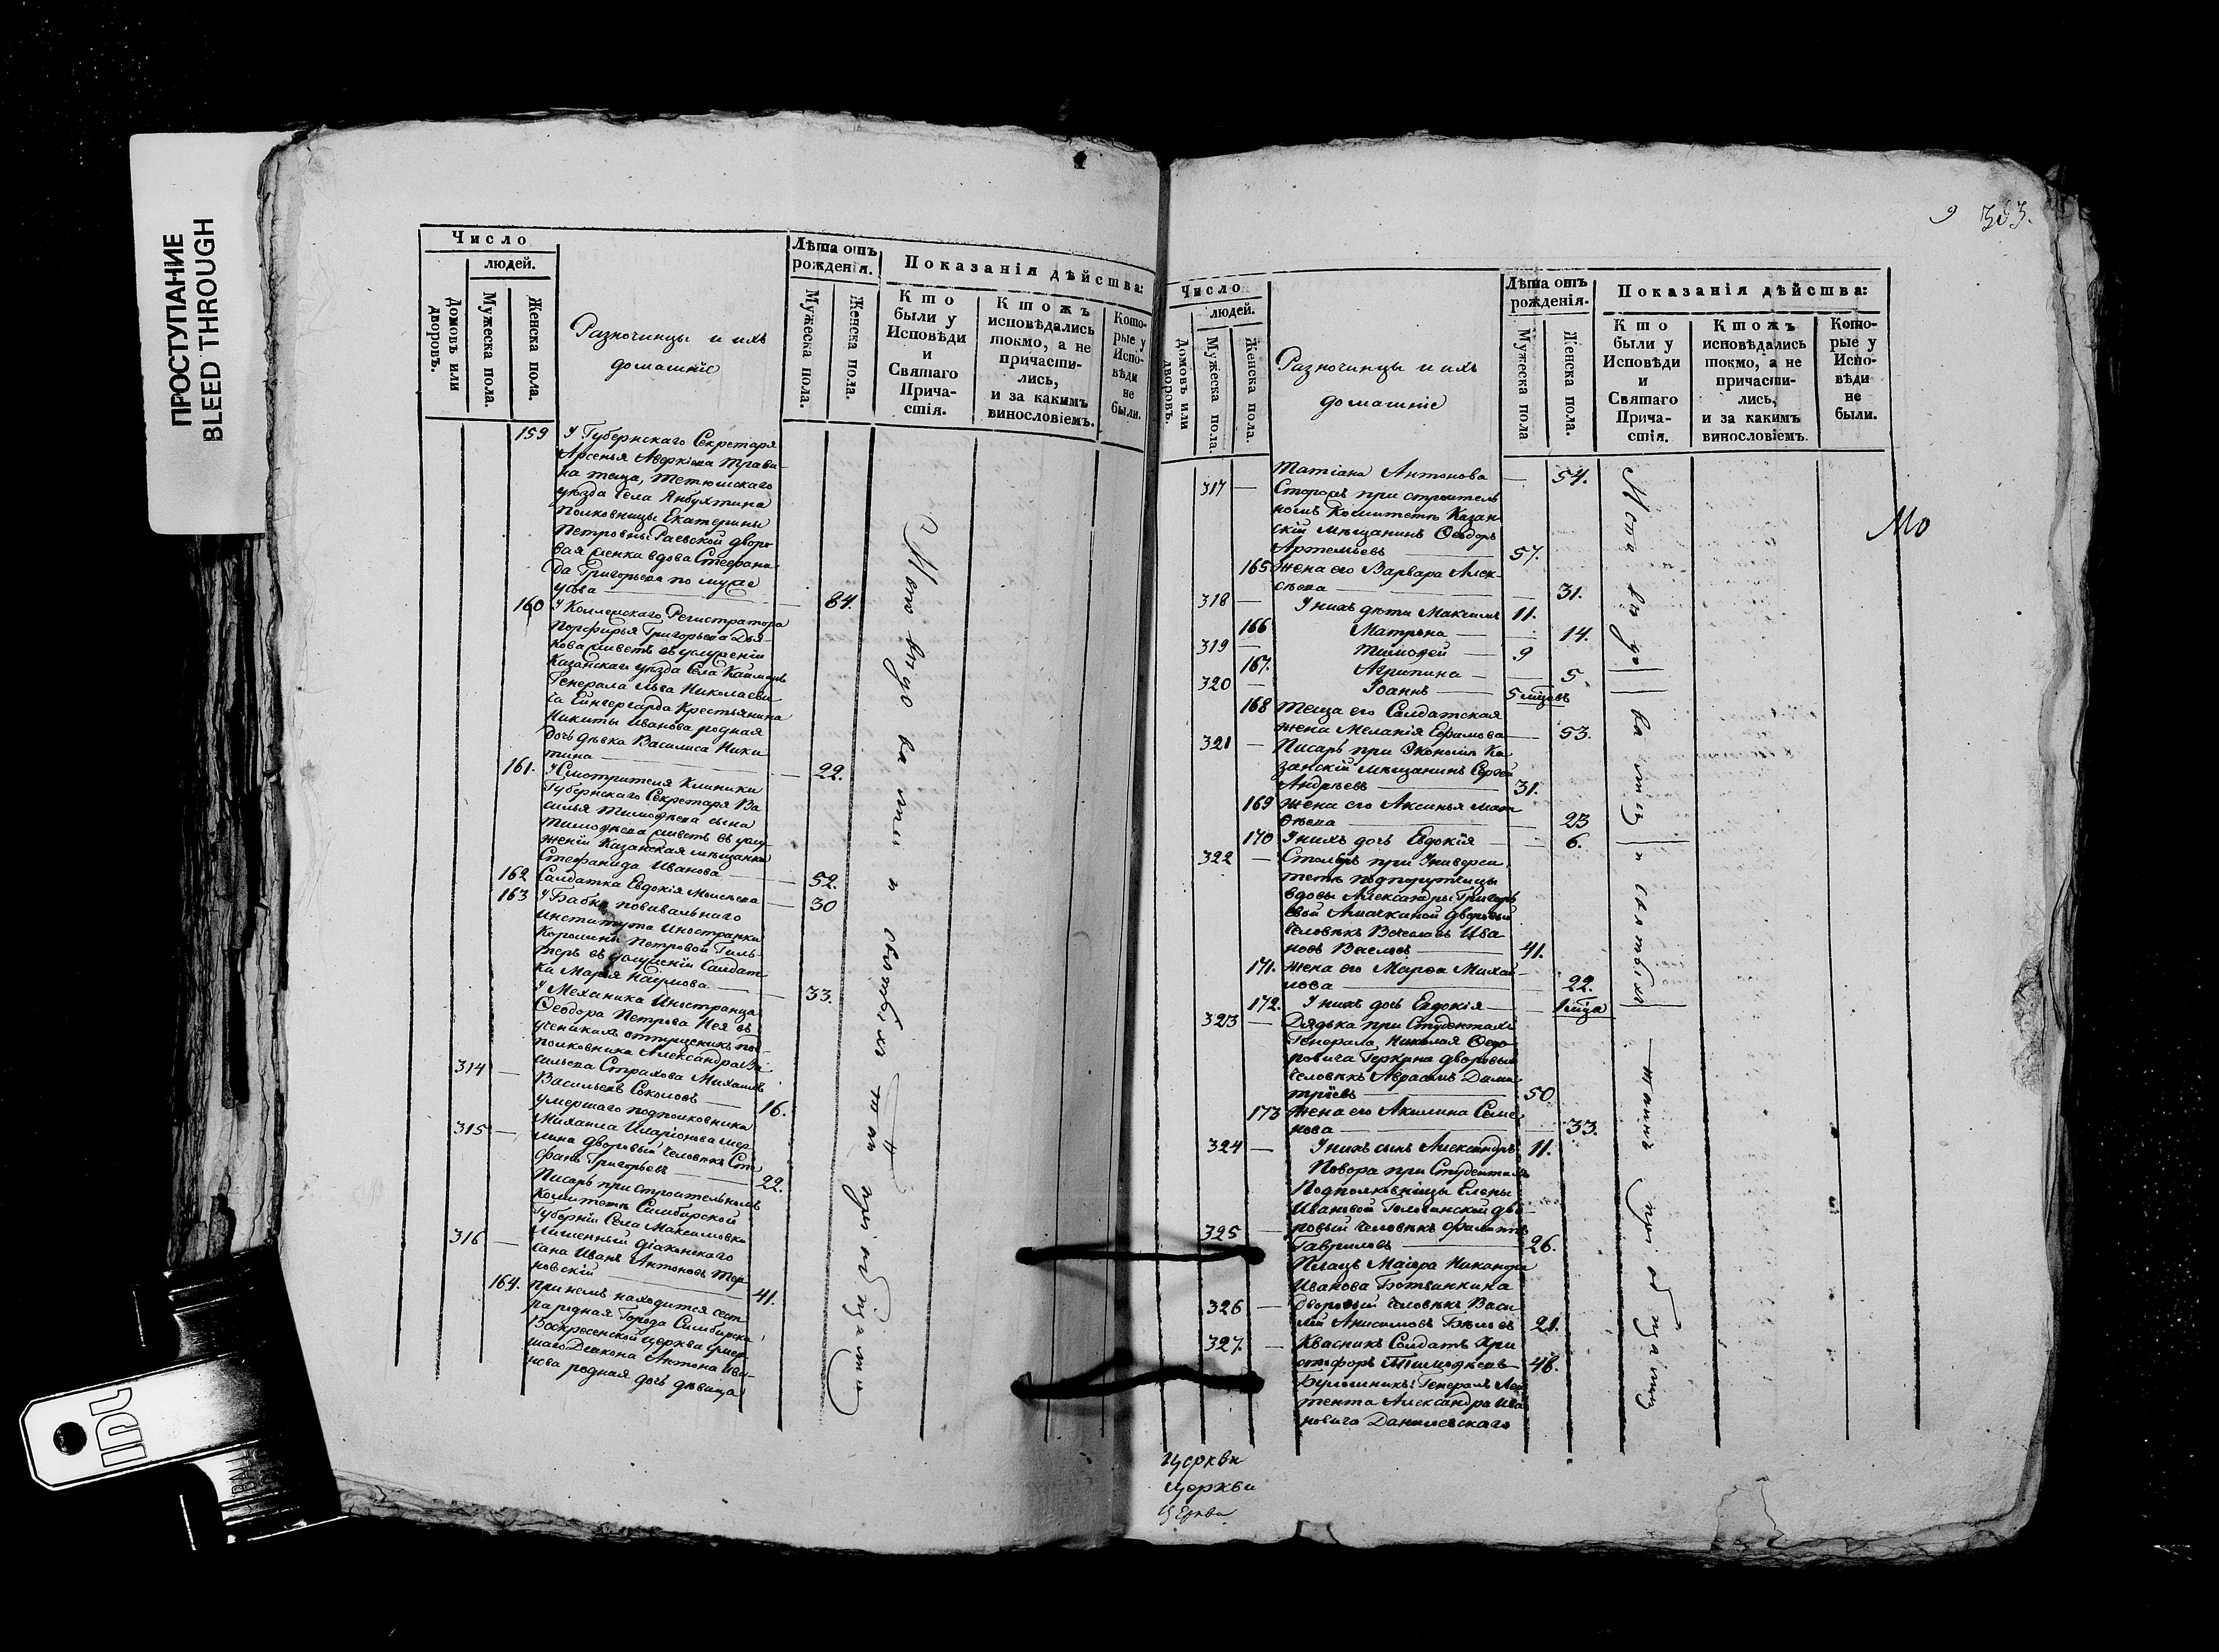 ПРОСТУПАНИЕ
BLEED THROUGH
Число
людей.
Домовъ или дворовъ.
Мужеска пола.
Женска пола.
Разночинцы и ихъ
домашніе
Лѣта отъ
рожденія.
Мужеска пола.
Женска пола.
Показанія дѣйства:
Кто
были у
Исповѣди
и
Святаго
Прича-
стія.
Ктожъ
исповѣдались
токмо, а не
причасти-
лись,
и за какимъ
винословіемъ.
Кото-
рые у
Испо-
вѣди
не
были.
159 У Губернскаго Секретаря
Арсенья Аверкіева Трави-
на теща, Тетюшскаго
уѣзда Села Янбухтина
Полковницы Екатерины
Петровны Раевской дворо
вая женка вдова Стефани
да Григорьева по мужѣ
84.
160 У Коллежскаго Регистратора
Порфирья Григорьева Дья-
кова живетъ въ услуженіи
Казанскаго уѣзда Села Каймаръ
Генерала Льва Николаеви
ча Енгергарда Крестьянина
Никиты Иванова родная
дочь дѣвка Василиса Ники
тина 22.
161. У Смотрителя Клиники
Губернскаго Секретаря Ва
силья Тимофѣева сына
Тимофѣева живетъ въ услу-
женіи Казанская мѣщанка
Стефанида Иванова 52.
162 Салдатка Евдокія Моисѣева 30
163 У Бабки повивальнаго
института Иностранки
Каролины Петровой Гиль-
теръ въ услуженіи Салдат
ка Марья Наумова 33.
У Механика Иностранца
Ѳеодора Петрова Нея въ
ученикахъ отпущенникъ под-
полковника Александра Ва
314 сильева Страхова Михаилъ
Васильевъ Соколовъ 16.
умершаго подполковника
Михаила Иларіонова Мер
315 лина дворовый человѣкъ Сте
фанъ Григорьевъ 22.
Писарь при строительномъ
Комитетѣ Симбирской
Губерніи Села Максимовки
Лишенный діаконскаго
316 сана Иванъ Антоновъ Тер
новскій 41.
164. При немъ находится сест
ра родная Города Симбирска
Воскресенской церкви умер
шаго Діакона Антона Ива-
нова родная дочь дѣвица
9 303.
Число
людей.
Домовъ или дворовъ.
Мужеска пола.
Женска пола.
Разночинцы и ихъ
домашніе
Лѣта отъ
рожденія.
Мужеска пола
Женска пола.
Показанія дѣйства:
Кто
были у
Исповѣди
и
Святаго
Прича-
стія.
Ктожъ
исповѣдались
токмо, а не
причасти-
лись,
и за какимъ
винословіемъ.
Кото-
рые у
Испо-
вѣди
не
были.
Татіана Антонова 54.
317 Сторожъ при строитель
номъ Комитетѣ Казан
скій мѣщанинъ Ѳеодоръ
Артемьевъ 57.
165. Жена его Варвара Алек-
сѣева 31.
318 У нихъ дѣти Максимъ 11.
166 Матрона 14.
319 Тимоѳей 9
167. Агрипина 5
320 Іоаннъ 5 мцовъ
168 Теща его Салдатская
жена Меланія Ефимова 53.
321 Писарь при Экономѣ Ка
занскій мѣщанинъ Сергей
Андрѣевъ 31.
169 Жена его Аксинья Мат
ѳѣева 23
170 У нихъ дочь Евдокія 6.
322 Столяръ при Универси
тетѣ подпоручицы
вдовы Александры Григорь
евой Амачкиной дворовый
человѣкъ Вечеславъ Ива
новъ 41.
171. Жена его Марѳа Михай
лова 22.
172. У нихъ дочь Евдокія 1 мца
323 Дядька при Студентахъ
Генерала Николая Ѳедо
ровича дворовый
человѣкъ Авраамъ Дими
тріевъ 50.
173 Жена его Акилина Семе
нова 33.
324 У нихъ сынъ Александръ 11.
Повора при Студентахъ
Подполковницы Елены
Ивановой Головинской дво
325 ровый человѣкъ Филиппъ
Гавриловъ 26.
Маіора Никандра
Иванова Ботвинкина
326 дворовый человѣкъ Васи
лій Анисимовъ Бѣловъ 21.
327. Квасникъ Солдатъ Хри
стофоръ Тимоѳѣевъ 48.
Генералъ Лей
тента Александра Ива
новича Данилевскаго
Церкви
Церкви
Церкви